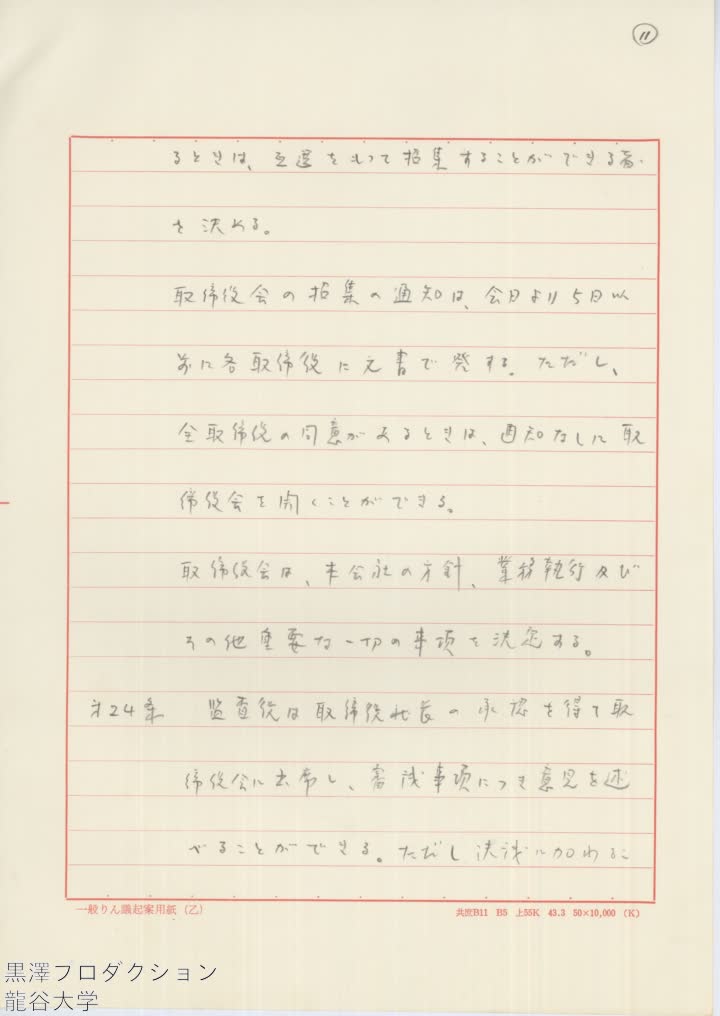 11
るときは、互選をもって招集することができる者
を決める。
取締役会の招集の通知は、会日より5日以
前に各取締役に文書で発する。ただし、
全取締役の同意があるときは、通知なしに取
締役会を開くことができる。
取締役会は、本会社の方針、業務執行及び
その他重要な一切の事項を決定する。
才24条 監査役は取締役社長の承認を得て取
締役会に出席し、審議事項につき意見を述
べることができる。ただし決議に加わるこ
一般りん議起案用紙（乙）
共庶B11 B5 上55K 43.3 50×10,000 （K）
黒澤プロダクション
龍谷大学